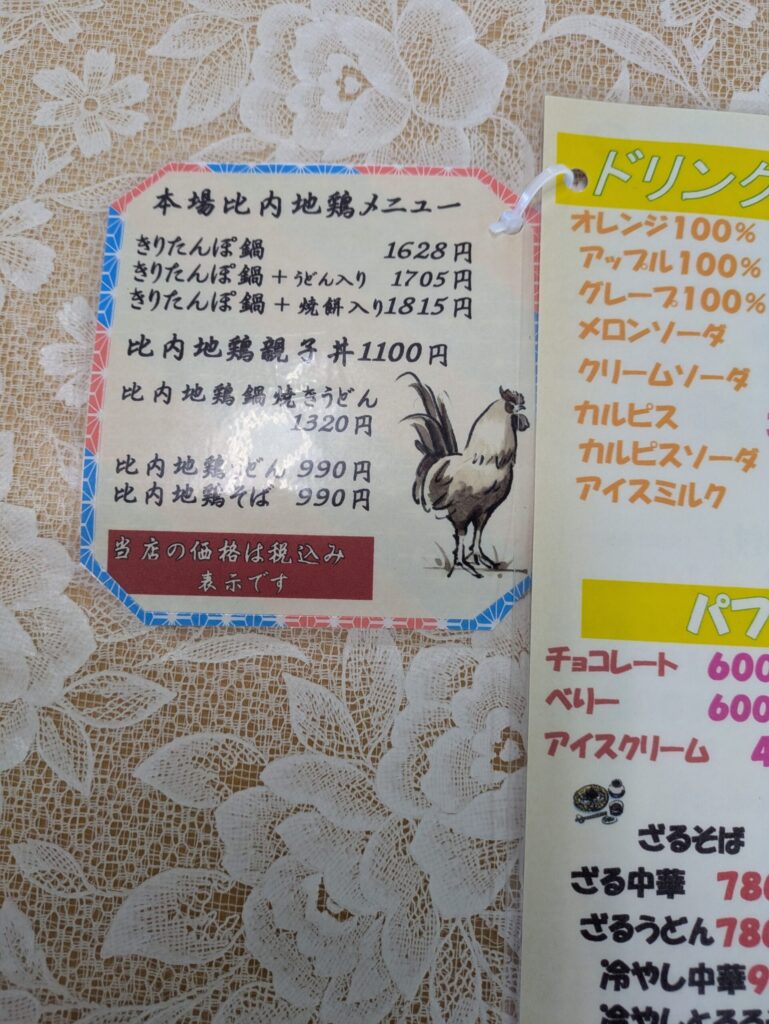 本場比内地鶏メニュー
きりたんぽ鍋 1628円
きりたんぽ鍋+うどん入り 1705円
きりたんぽ鍋+焼餅入り1815円
比内地鶏親子丼1100円
比内地鶏鍋焼きうどん
1320円
比内地鶏うどん 990円
比内地鶏そば 990円
当店の価格は税込み
表示です
ドリンク
オレンジ100%
アップル100%
グレープ100%
メロンソーダ
クリームソーダ
カルピス
カルピスソーダ
アイスミルク
パフ
チョコレート 600
ベリー 600
アイスクリーム 4
ざるそば
ざる中華 780
ざるうどん780
冷やし中華9
冷やしとろろ